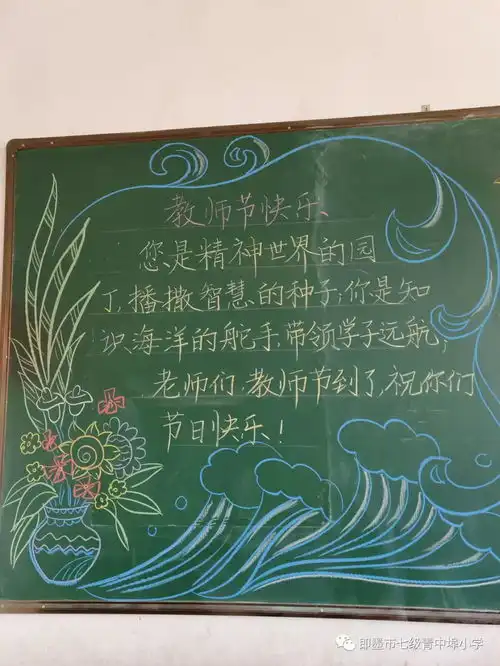 教师节快乐、
您是精神世界的园
丁,播撒智慧的种子;你是知
识海洋的舵手带领学子远航;
老师们,教师节到了,祝你们
节日快乐!
即墨市七级青中埠小学